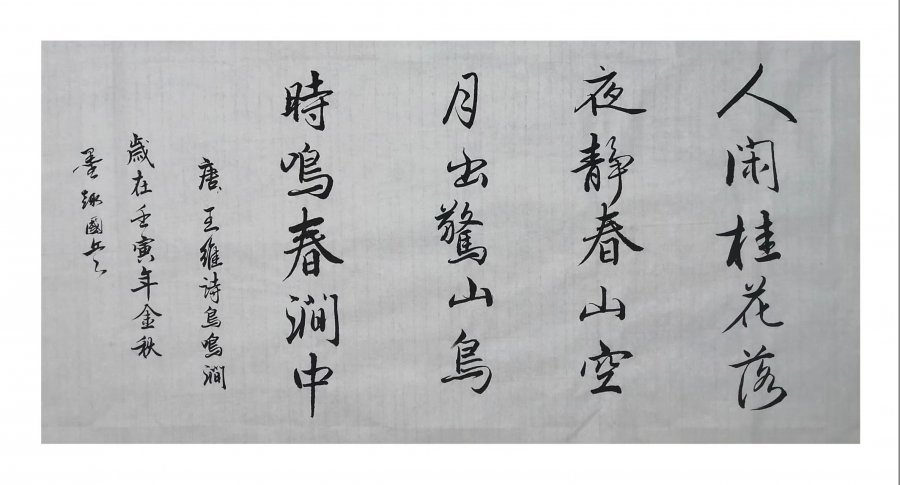 人闲桂花落
夜靜春山空
月出驚山鳥
時鳴春澗中
唐王維诗鳥鳴澗
歲在壬寅年金秋
墨趣國兵